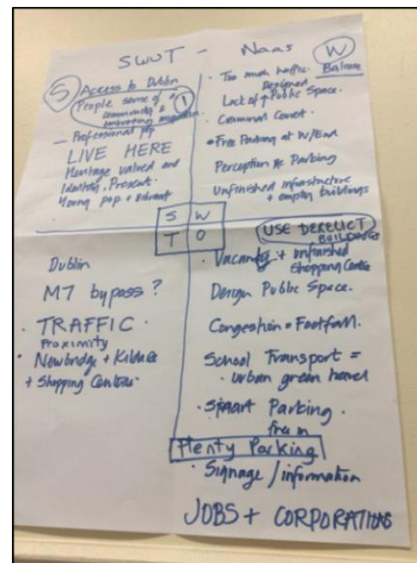 SWOT - Naas
S
Access to Dublin
People sense of
community &
1
Professional pop
LIVE HERE
Heritage valued and
Identity. Present.
Young pop + vibrant
W
Balance
Too much traffic.
designed
Lack of Public Space.
Criminal Court.
Free Parking at W/End
Perception Parking
Unfinished infrastructure
+ empty buildings
S W
T O
Dublin
M7 bypass?
TRAFFIC
Proximity
Newbridge + Kildare
+ Shopping Centres
USE DERELICT
BUILDINGS
Vacancy + unfinished
Shopping Centre
Design Public Space.
Congestion = Footfall.
School Transport =
urban green
Smart Parking.
free
Plenty Parking
Signage/information
JOBS + CORPORATIONS